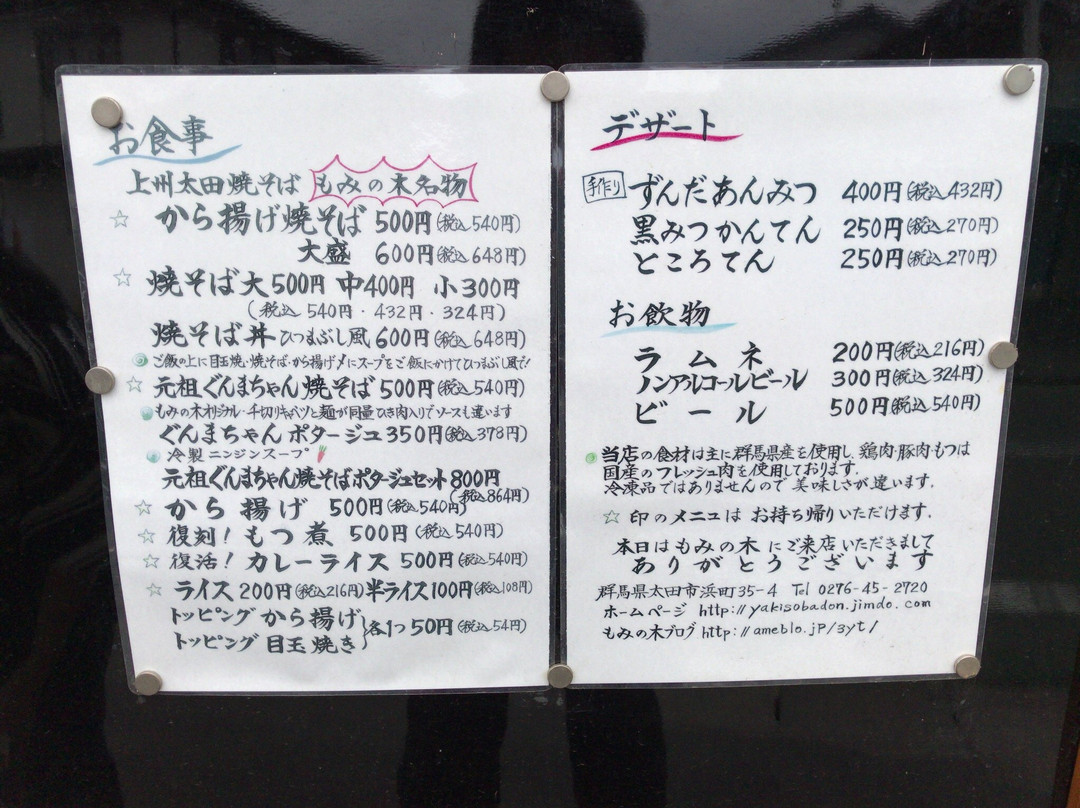 お食事
上州太田焼そば もみの木名物
☆ から揚げ焼そば 500円(税込540円)
大盛 600円(税込648円)
☆ 焼そば大500円 中400円 小300円
(税込 540円・432円・324円)
焼そば丼ひつまぶし風600円(税込648円)
ご飯の上に目玉焼・焼そば・から揚げ〆にスープをご飯にかけてひつまぶし風で!
☆ 元祖ぐんまちゃん焼そば500円(税込540円)
もみの木オリジナル・千切りキャベツと麺が同量ひき肉入りでソースも違います
ぐんまちゃんポタージュ350円(税込378円)
冷製ニンジンスープ
元祖ぐんまちゃん焼そばポタージュセット800円
(税込864円)
☆ から揚げ 500円(税込540円)
☆ 復刻!もつ煮 500円(税込540円)
☆ 復活!カレーライス 500円(税込540円)
☆ ライス200円(税込216円)半ライス100円(税込108円)
トッピング から揚げ
トッピング 目玉焼き
}各1つ50円(税込54円)
デザート
手作り ずんだあんみつ 400円(税込432円)
黒みつかんてん 250円(税込270円)
ところてん 250円(税込270円)
お飲物
ラムネ 200円(税込216円)
ノンアルコールビール 300円(税込324円)
ビール 500円(税込540円)
当店の食材は主に群馬県産を使用し、鶏肉・豚肉・もつは
国産のフレッシュ肉を使用しております.
冷凍品ではありませんので 美味しさが違います.
☆ 印のメニュは お持ち帰りいただけます.
本日はもみの木にご来店いただきまして
ありがとうございます
群馬県太田市浜町35-4 Tel 0276-45-2720
ホームページ http://yakisobadon.jimdo.com
もみの木ブログ http://ameblo.jp/3yt/